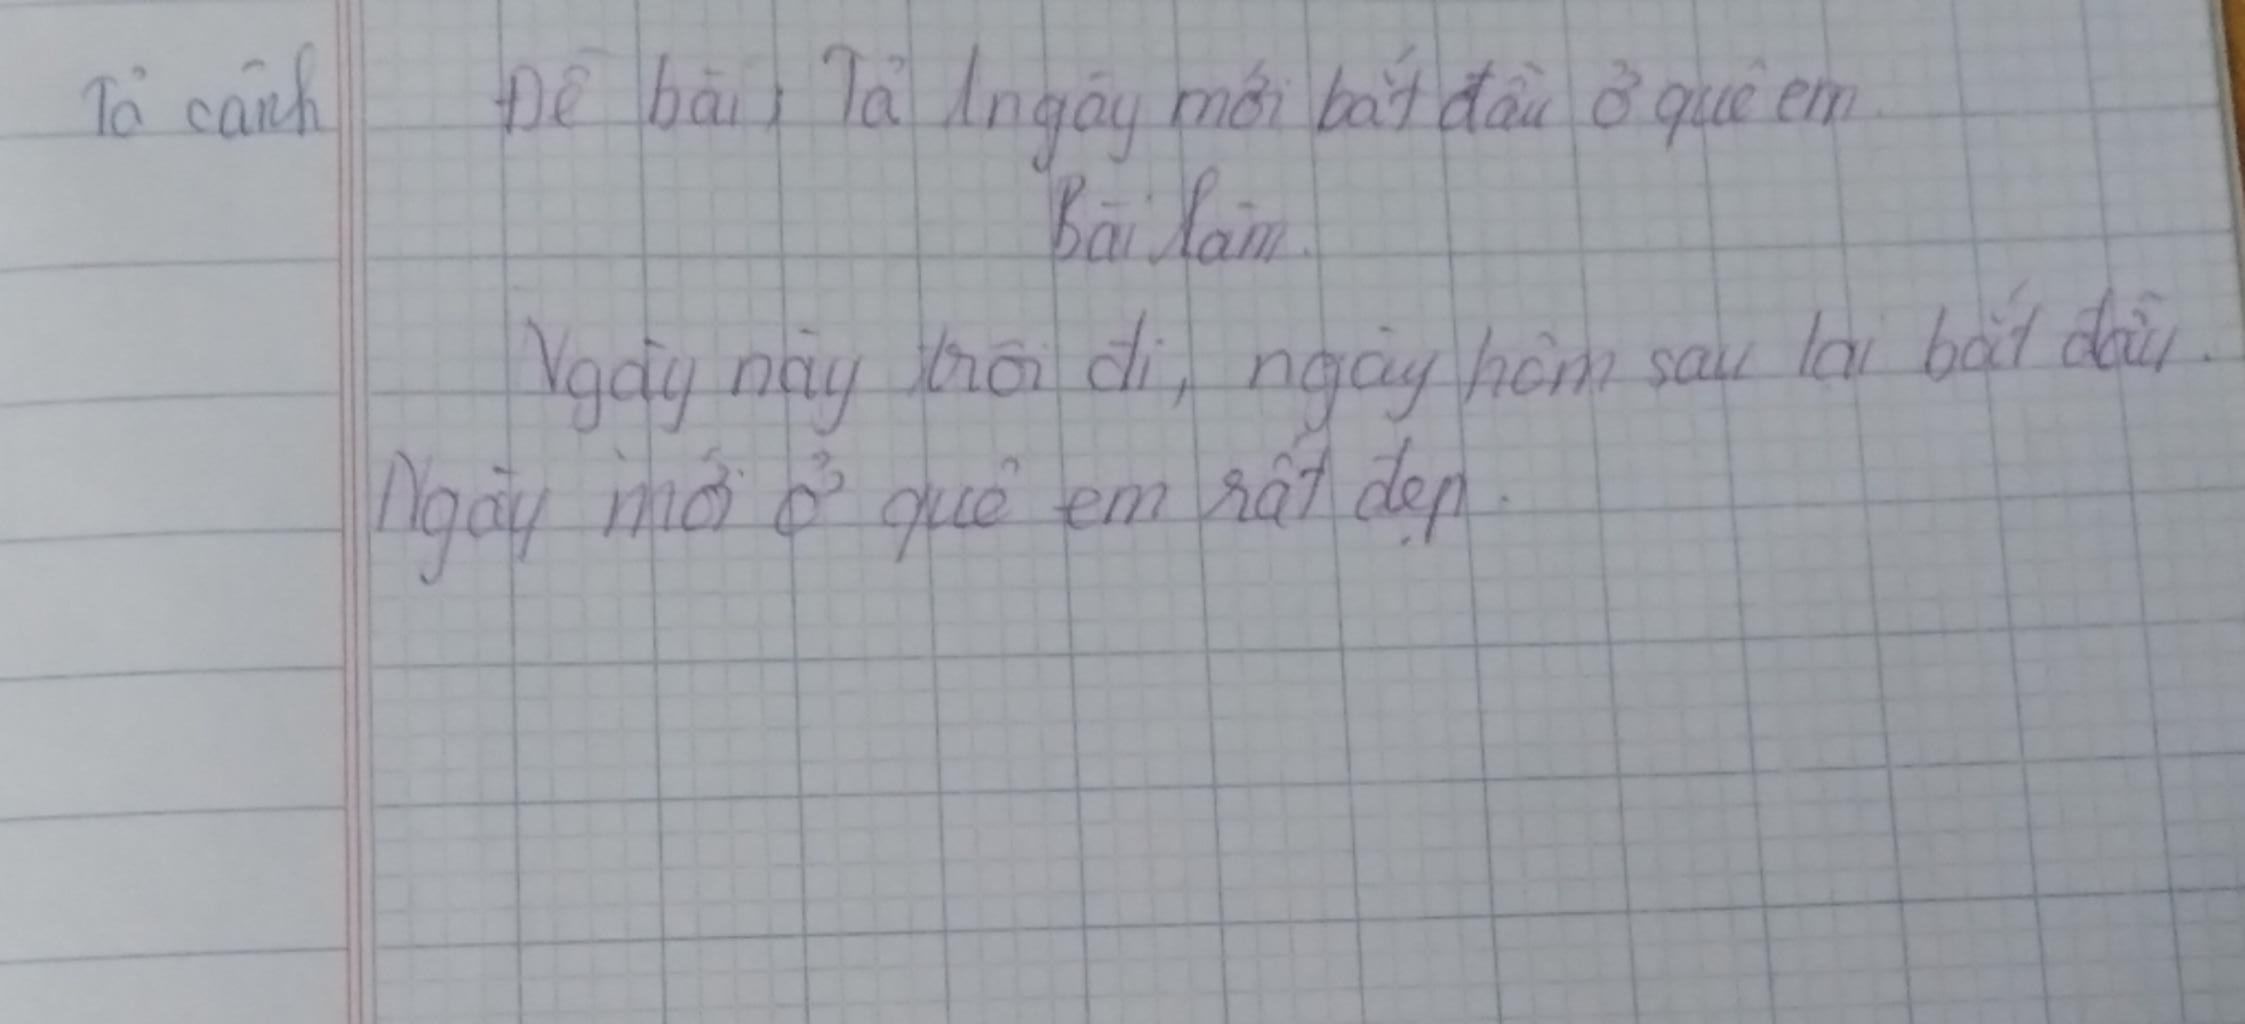 Tả cảnh
Đề bài: Tả 1 ngày mới bắt đầu ở quê em.
Bài làm.
Ngày này trôi đi, ngày hôm sau lại bắt đầu.
Ngày mới ở quê em rất đẹp.